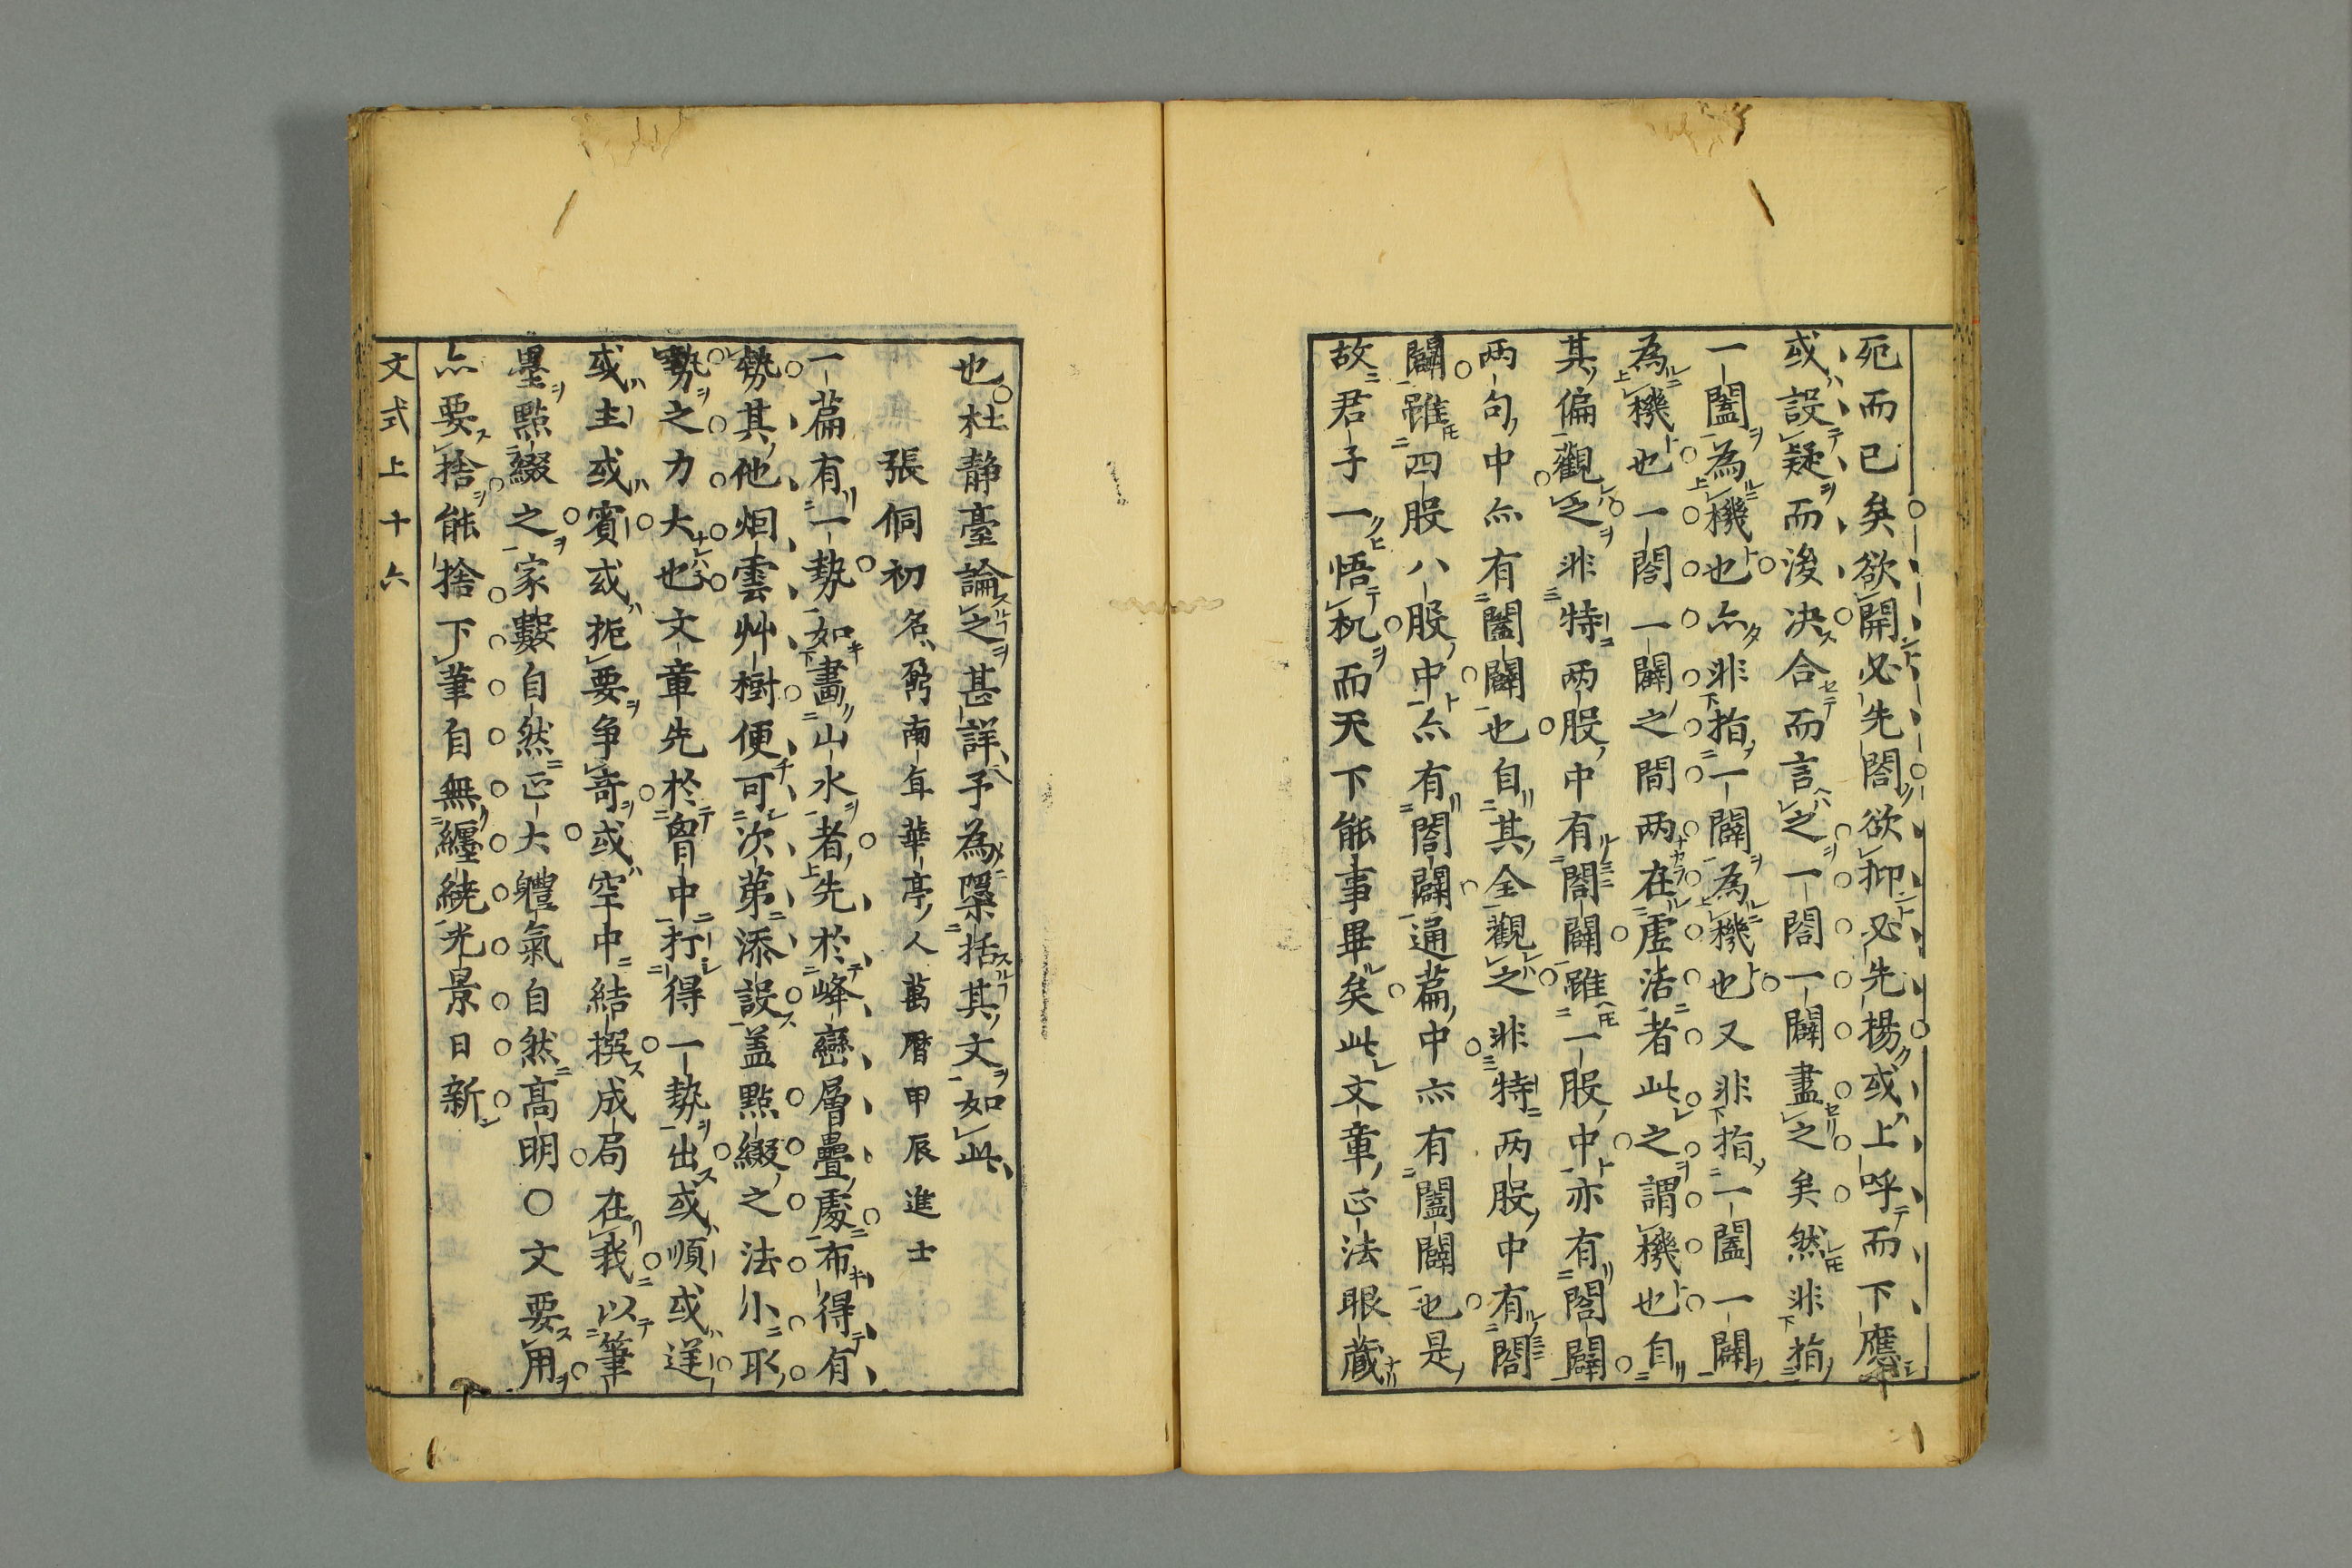 死而已矣欲開必先闔欲抑必先揚或上呼而下應
或設疑而後决合而言之一闔一闢盡之矣然非指
一闔為機也亦非指一闢為機也又非指一闔一闢
為機也一闔一闢之間两在虚活者此之謂機也自
其偏觀之非特两股中有闔闢雖一股中亦有闔闢
两句中亦有闔闢也自其全觀之非特两股中有闔
闢雖四股八股中亦有闔闢通篇中亦有闔闢也是
故君子一悟机而天下能事畢矣此文章正法眼蔵
也杜静臺論之甚詳予為檃括其文如此
張侗初名鼐南直華亭人萬曆甲辰進士
一篇有一勢如畫山水者先於峰巒層疊處布得有
勢其他烟雲艸樹便可次第添設盖點綴之法小取
勢之力大也文章先於胷中打得一勢出或順或逆
或主或賓或扼要争奇或空中結撰成局在我以筆
墨點綴之家數自然正大軆氣自然高明〇文要用
亦要捨能捨下筆自無纒繞光景日新
文式上十六